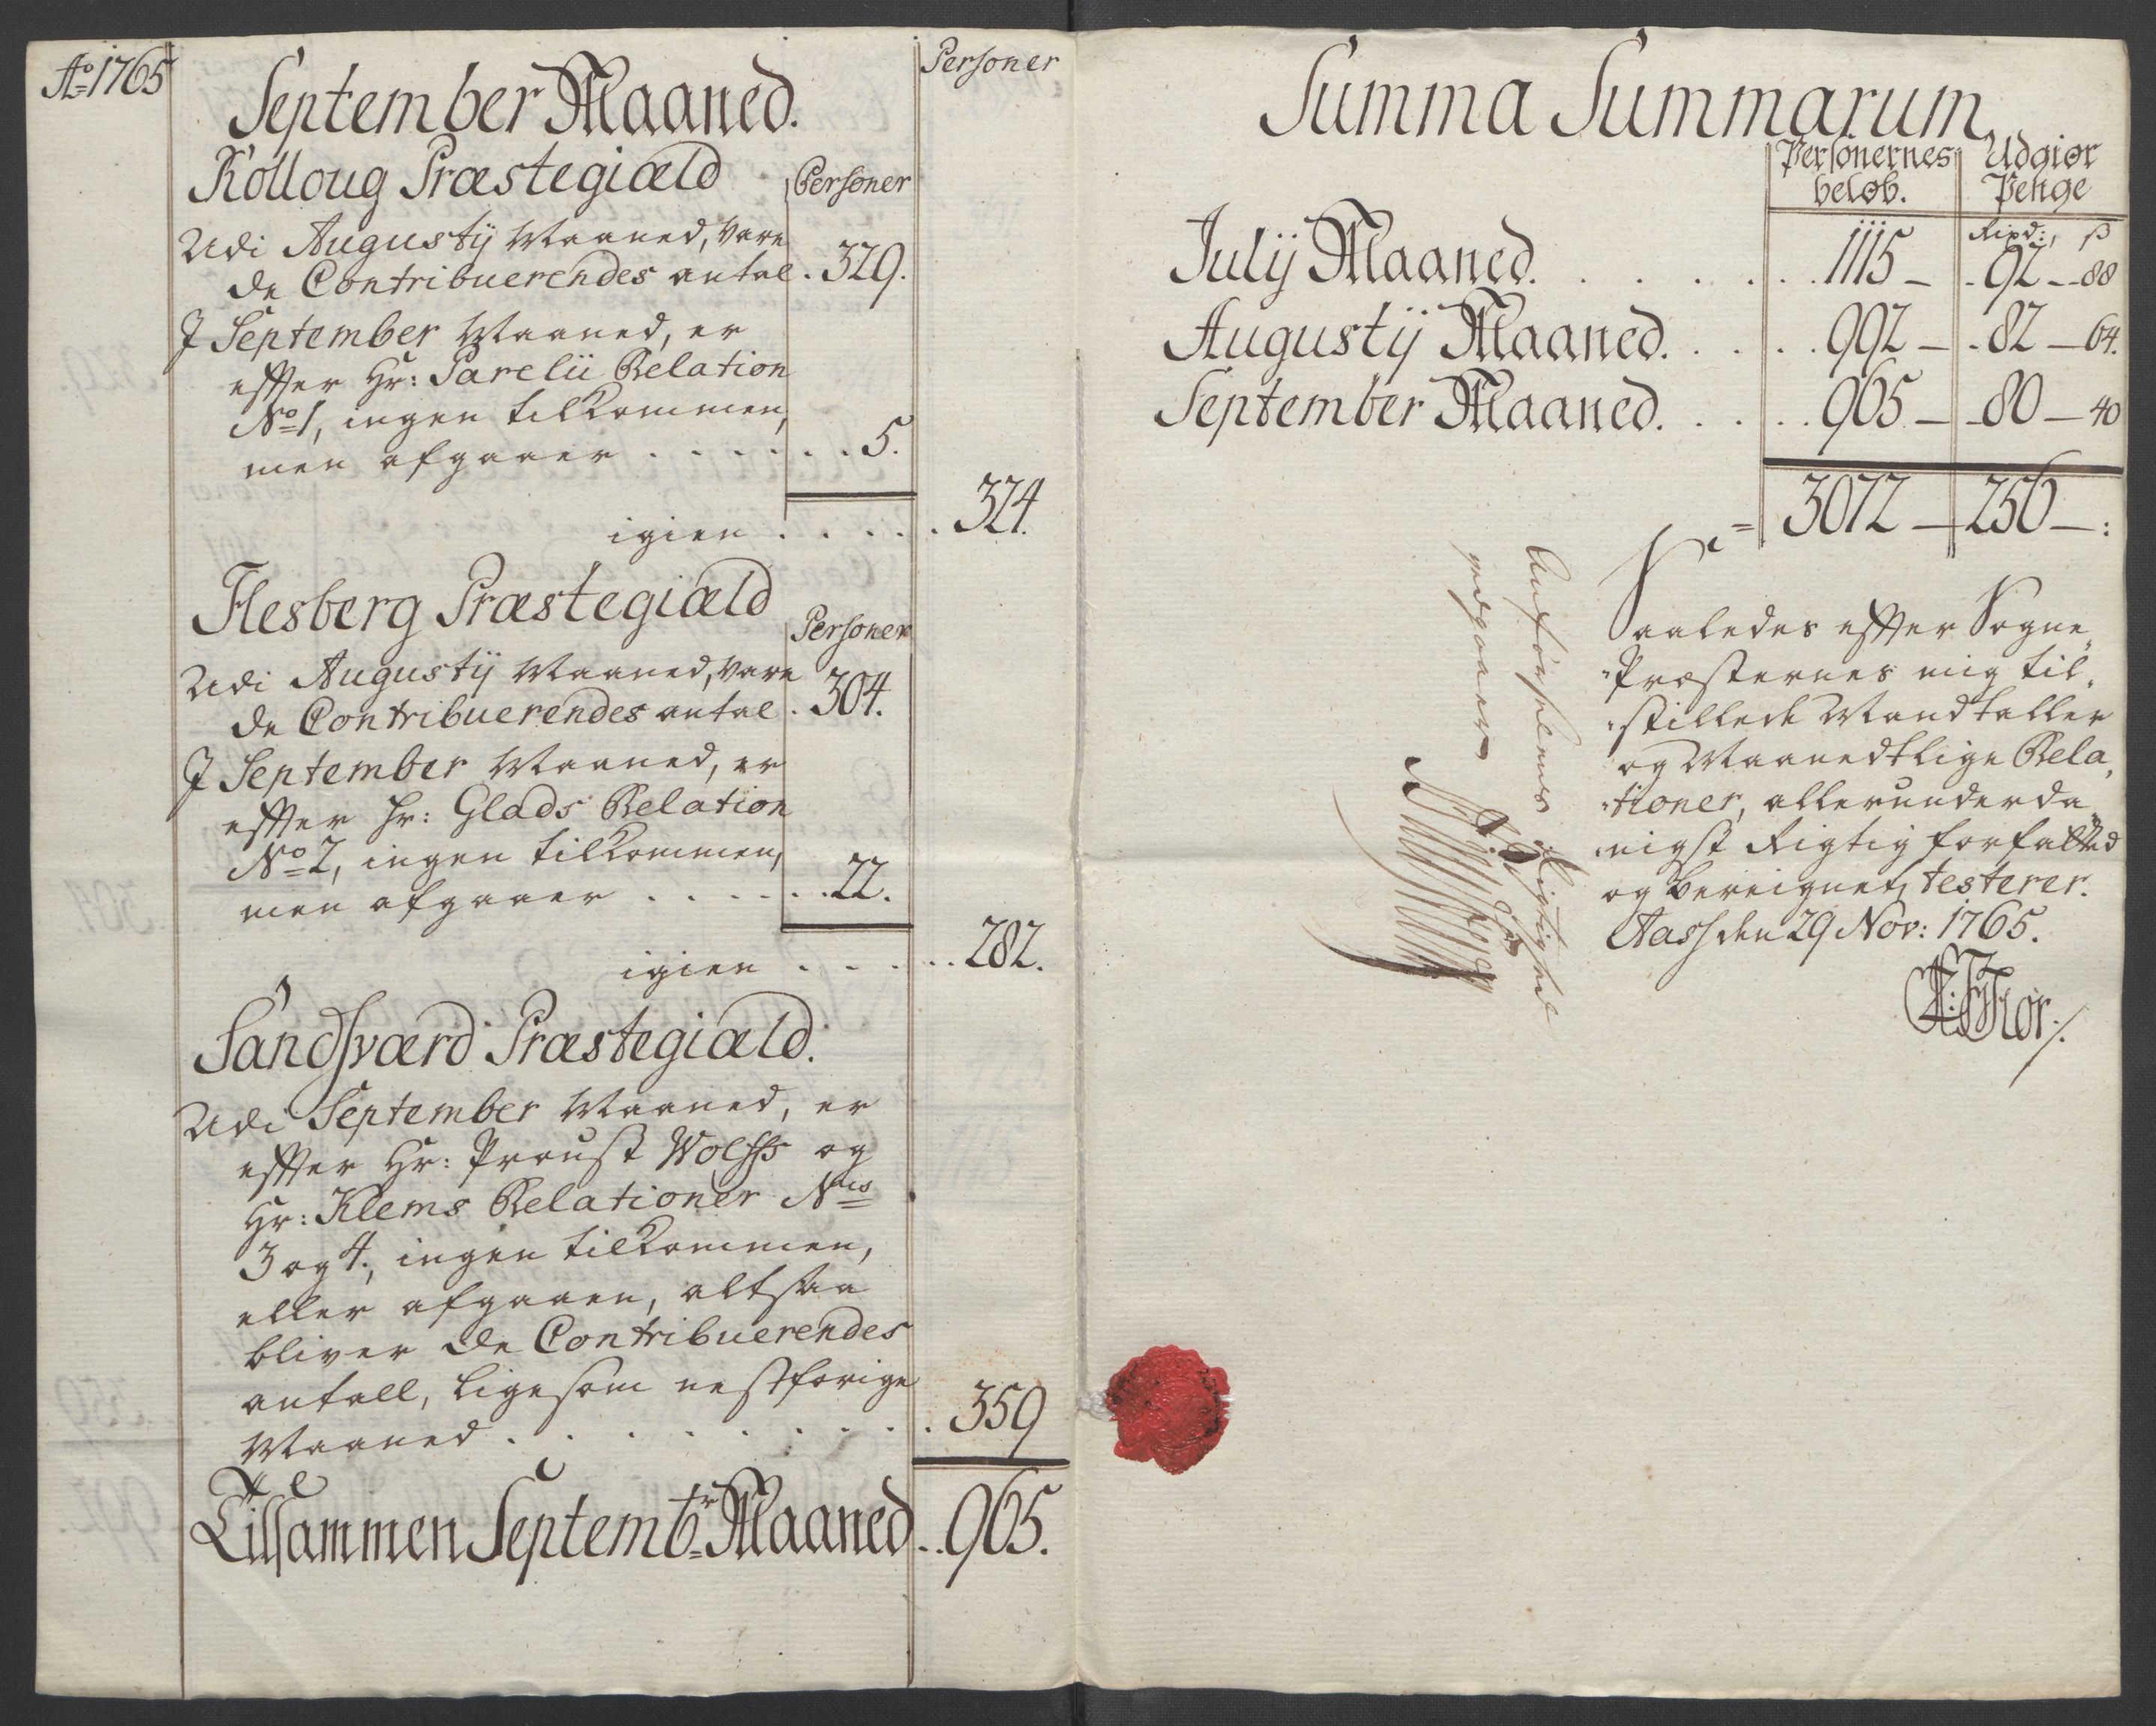 Ao 1765
Personer
September Maaned.
Kolloug Præstegiæld
Personer
Udi Augustij Maaned, vare
de Contribuerendes antal . 329.
J September Maaned, er
effter Hr: Parelii Relation
No 1, ingen tilkommen,
men afgaaer . . . . . . 5.
igien . . . . . 324.
Flesberg Præstegiæld
Personer
Udi Augustij Maaned, vare
de Contribuerendes antal . 304.
J September Maaned, er
effter Hr: Glads Relation
No 2, ingen tilkommen,
men afgaaer . . . . . 22.
igien . . . . . 282.
Sandsværd Præstegiæld.
Udi September Maaned, er
effter Hr: Proust Wolffs og
Hr: Klems Relationer Nis
3 og 4, ingen tilkommen,
eller afgaaen, altsaa
bliver de Contribuerendes
antall, ligesom nestforige
Maaned . . . . . . . . 359
Tilsammen Septembr Maaned . . 965.
Summa Summarum
Personernes beløb.
Udgiør Penge
Rixd: ß
Julij Maaned. . . . . . . 1115 – 92 – 88
Augustij Maaned. . . . . 992 – 82 – 64.
September Maaned. . . . . 965 – 80 – 40
= 3072 – 256 – :
Saaledes effter Sogne
Præsternes mig til
stillede Mandtaller
og Maanedtlige Rela
tioner, allerunderda
nigst Rigtig forfatted
og bereignet, testerer.
Aass den 29 Nov: 1765.
Anførselens Rigtighed
vedgaaer